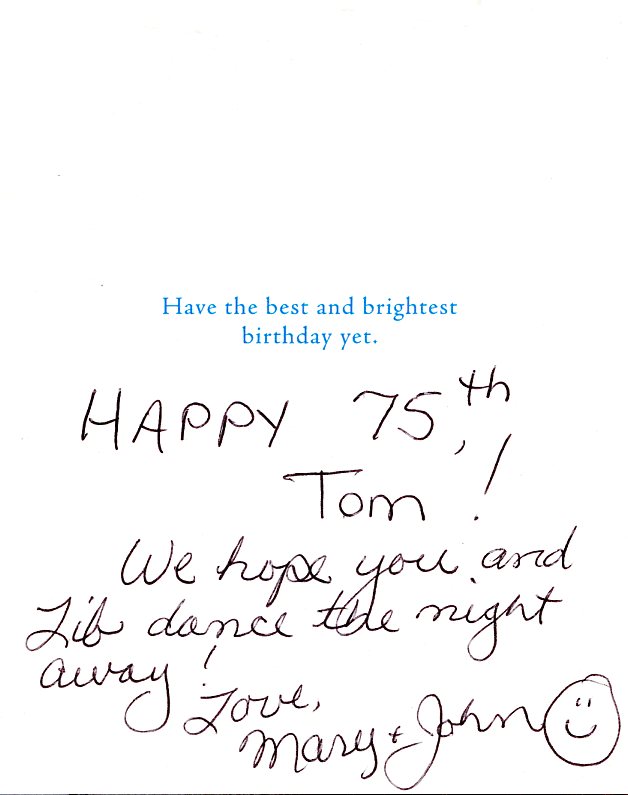 Have the best and brightest
birthday yet.
HAPPY 75th,
Tom!
We hope you and
Lib dance the night
away!
Love,
Mary + John